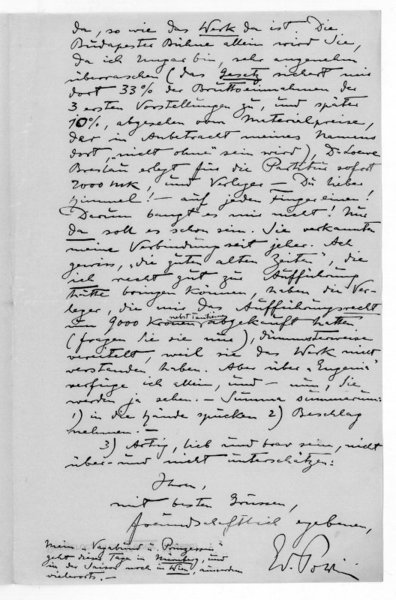 da, so wie das Werk da ist. Die
Budapester Bühne allein wird Sie,
da ich Ungar bin, sehr angenehm
überraschen (das Gesetz sichert mir
dort 33% der Bruttoeinnahmen der
3 ersten Vorstellungen zu, und später
10%, abgesehen vom Materialpreise,
der in Anbetracht meines Namens
dort „nicht ohne" sein wird), Dr Loewe
Breslau erlegt für die Partitur sofort
2000 mk, und Verleger — Du lieber
Himmel! — auf jeden Finger einen!
Darum bangt es mir nicht! Nur
da soll es schon sein. Sie verkannten
meine Verbindung seit jeher. Ach
gewiss, „die guten alten Zeiten", die
ich recht gut zu Aufführung
hätte bringen können, haben die Ver-
leger, die mir das Aufführungsrecht
um 9000 Kronen nebst Tantiemen abgekauft hatten
(fragen Sie sie nur), dummerweise
vereitelt, weil sie das Werk nicht
verstanden haben. Aber über „Eugenie"
verfüge ich allein, und — nun, Sie
werden ja sehen. — Summa summarum:
1) in die Hände spucken 2) Beschlag
nehmen. —
3) Artig, lieb und brav sein, nicht
über- und nicht unterschätzen.
Ihr,
mit besten Grüssen,
freundschaftlich ergebener,
Mein „Vagabund u. Prinzessin"
geht diese Tage in Nürnberg, und
in der Saison noch in Wien, auch